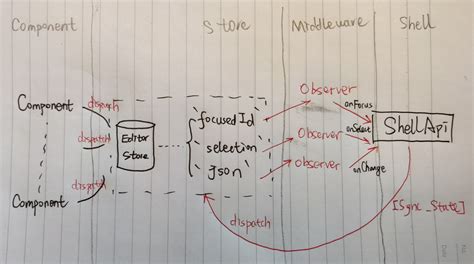 Component
Store
Middleware
Shell
Component
dispatch
dispatch
dispatch
Component
Editor
Store
focusedId
selection
json
Observer
Observer
Observer
onFocus
onSelect
onChange
ShellApi
dispatch
[Sync_State]